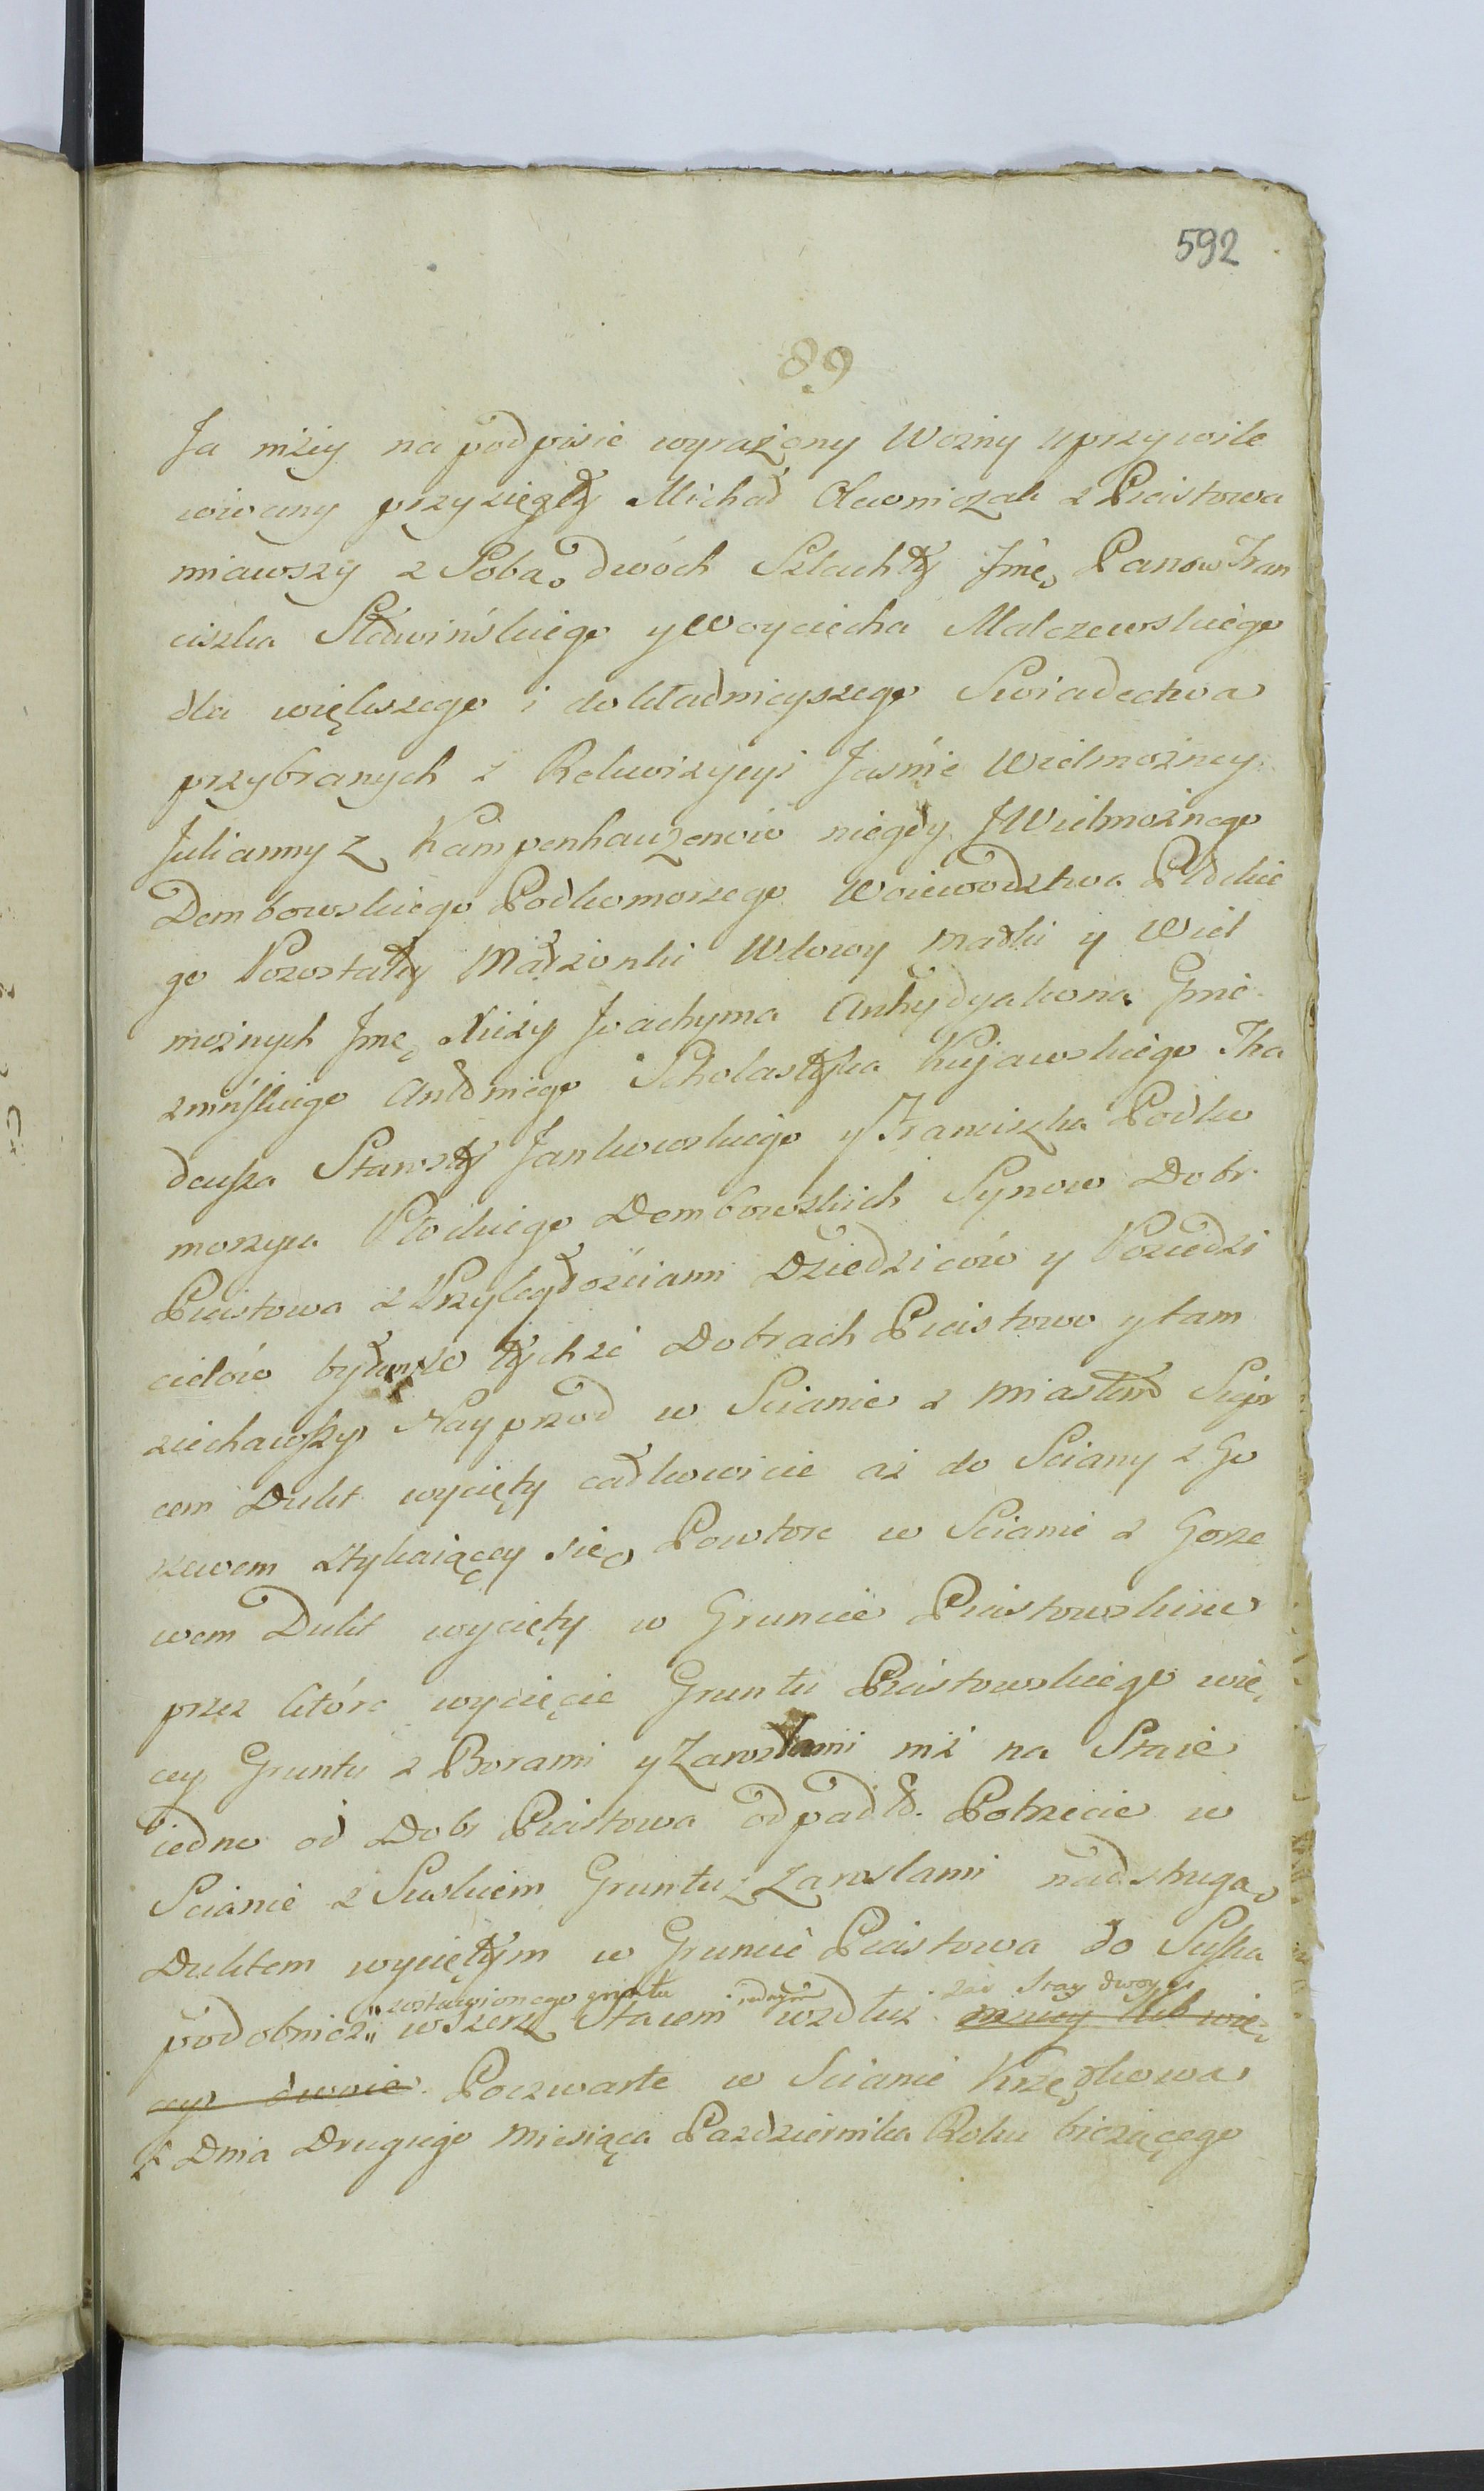 592
89
Ja niżiy na podpisie wyrażony Wozny uprzywile
iowany przysięgły Michał Olewniczak z Piastowa
miawszy z Sobą dwóch Szlachty Jmę Panow Fran
ciszka Słowińskiego y Woyciecha Malczewskiego
dla większego i dokładnieyszego Swiadectwa
przybranych z Rekwizycyi Jaśnie Wielmożney
Julianny z Kampenhauzenow niegdy JWielmożnego
Dembowskiego Podkomorzego Woiewodztwa Płockie
go Pozostałey Małżonki Wdowy Matki y Wiel
możnych Jmę Xiezy Joachyma Archydyakona Gnie
znińskiego Antoniego Scholastyka Kujawskiego Tha
deusza Starosty Jankowskiego y Franciszka Podko
morzyca Płockiego Dembowskich Synow Dobr
Piastowa z Przyległościami Dziedziców y Posiedzi
cielów byłem w tychże Dobrach Piastowo y tam
ziechawszy Nayprzod w Scianie z Miastem Sierp
cem Dukt wycięty całkowicie aż do Sciany z Go
rzewem stykaiącey się Powtore w Scianie z Gorze
wem Dukt wycięty w Gruncie Piastowskim
przez które wycięcie Gruntu Piastowskiego wię
cey Gruntu z Borami y Zaroslami niż na Staie
iedno od Dobr Piastowa odpadło. Potrzecie w
Scianie z Suskiem Gruntu z Zaroslami nad strugą
Duktem wyciętym w Gruncie Piastowa do Suska
zostawionego gruntu iednym zaś Stay dwoye
podobnież wszerz Staiem wzdłuż mniey lub wię
cey dwoie Poczwarte w Scianie Krzę
Dnia Drugiego Miesiąca Pazdziernika Roku bieżącego